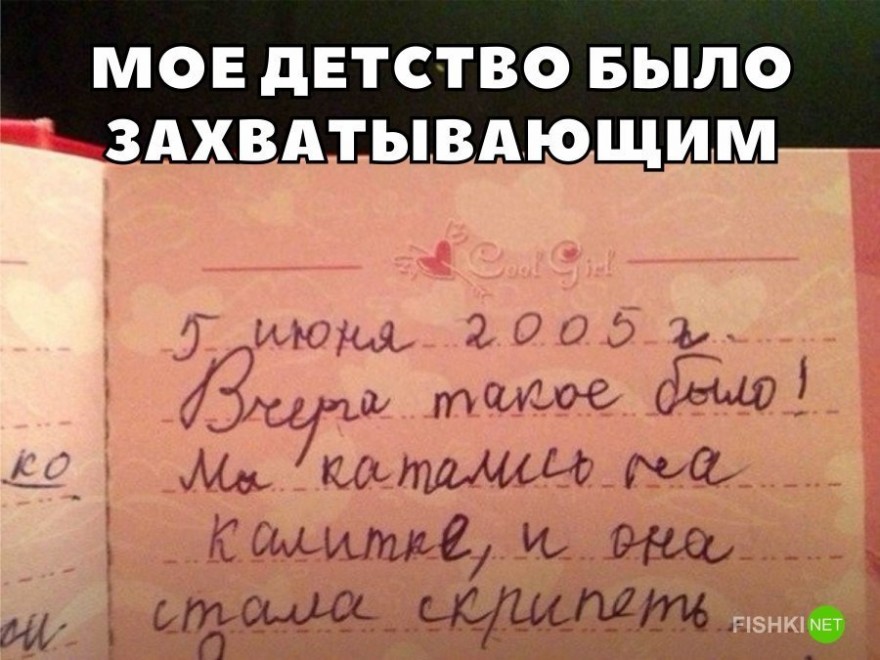 МОЕ ДЕТСТВО БЫЛО
ЗАХВАТЫВАЮЩИМ
Cool Girl
5 июня 2005 г.
Вчера такое было!
Мы катались на
ко
калитке, и она
стала скрипеть
FISHKI NET